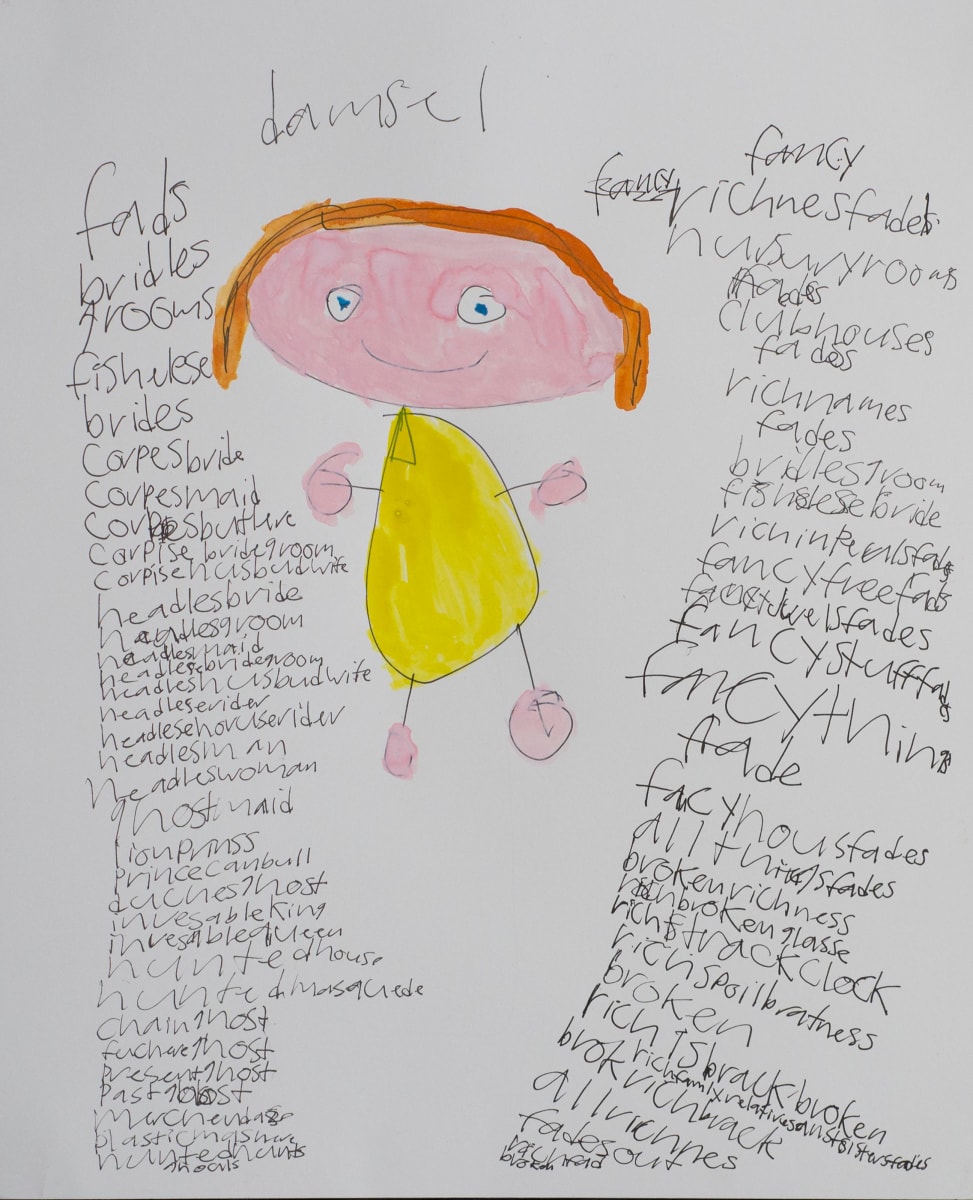 damsel
fads
bridles
grooms
fishelese
brides
corpesbride
corpesmaid
corpesbuthere
corpise bridegroom
corpisehusbudwife
headlesbride
headlesgroom
headlesmaid
headlesbridegroom
headleshusbudwife
headleserider
headlesehouserider
headlesman
headleswoman
ghostmaid
lionprinss
princecanbull
duchesghost
invesableking
invesablequeen
huntedhouse
hunted masquede
chainghost
fucherеghost
presentghost
pastghost
huntedhunts
fancy
fancy richnesfades
nursuryrooms
fades
clubhouses
fades
richnames
fades
bridlesgroom
fishelesebride
fancyfreefads
fancyjewelsfades
fancystufffads
fancything
fade
facyhousfades
allthingsfades
brokenrichness
richbrokenglasse
richstrackclock
richspoilbratness
broken
rich is brackbroken
richfamlyrelativesanstsistersfades
brokrichback
allrichnes
fadesout